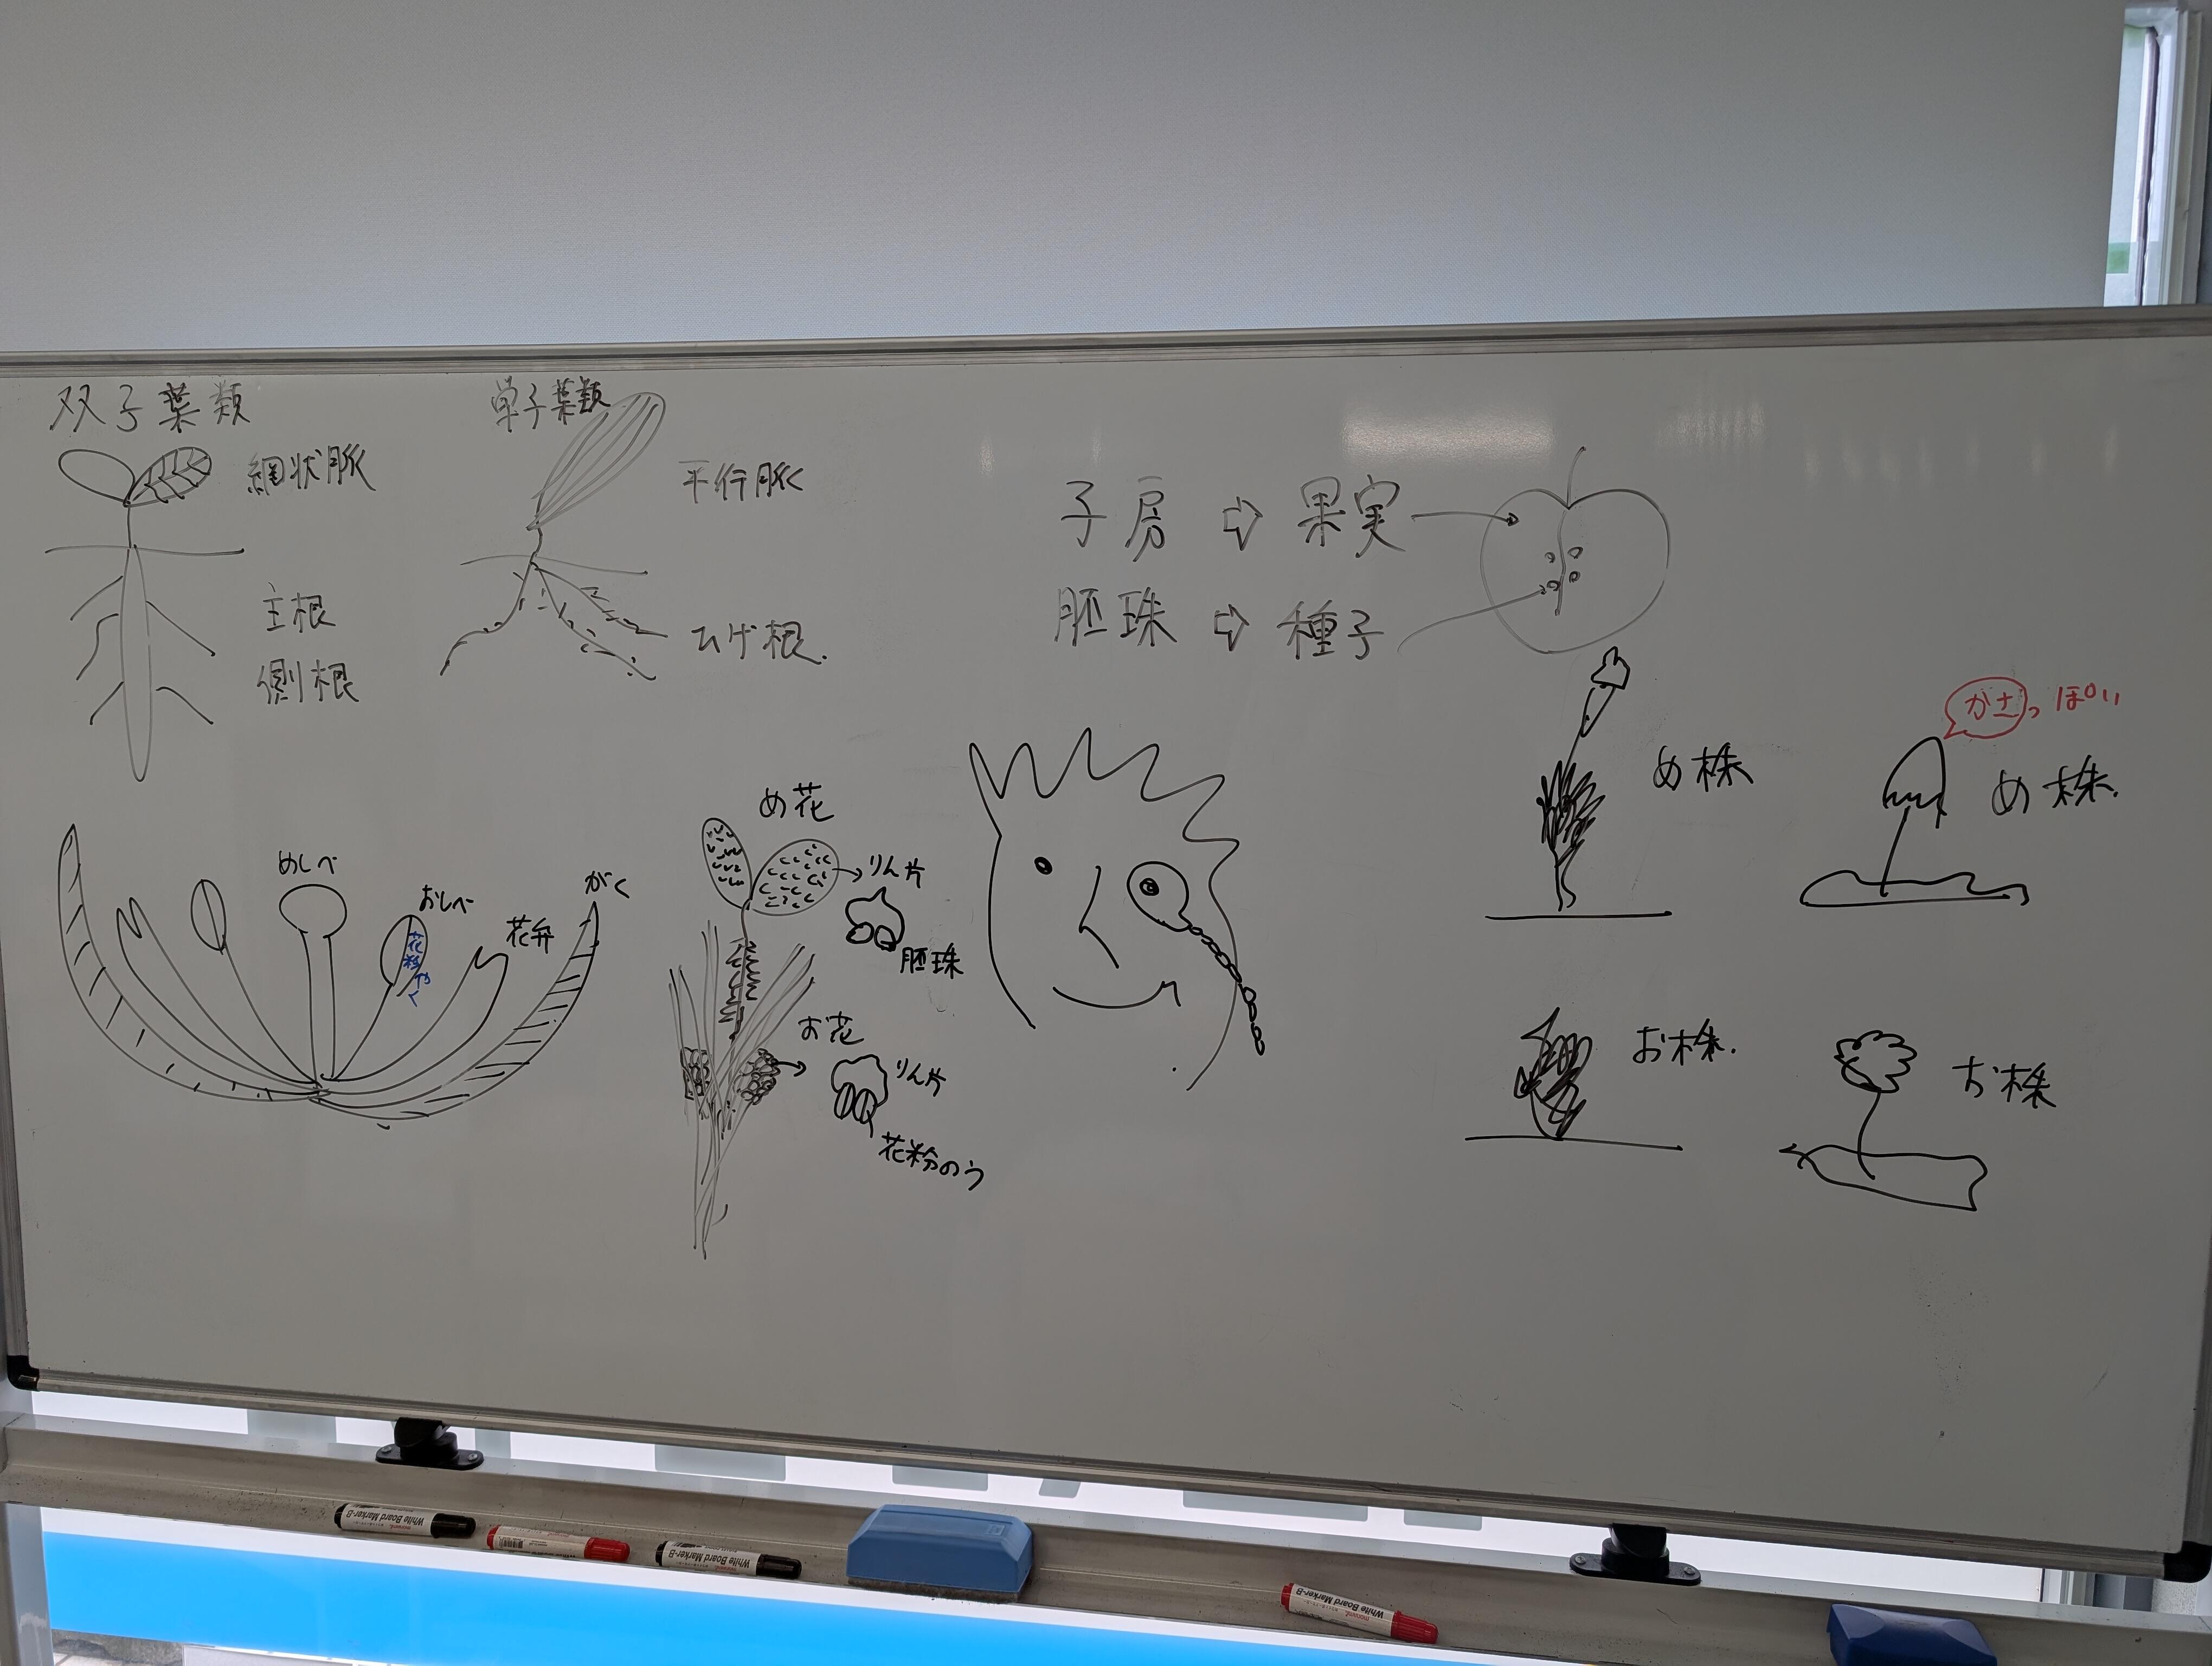 双子葉類
網状脈
主根
側根
単子葉類
平行脈
ひげ根.
子房 ⇨ 果実
胚珠 ⇨ 種子
めしべ
おしべ
花粉
やく
花弁
がく
め花
りん片
胚珠
お花
りん片
花粉のう
め株
かさっぽい
め株.
お株.
お株
White Board Marker-B
White Board Marker-B
White Board Marker-B